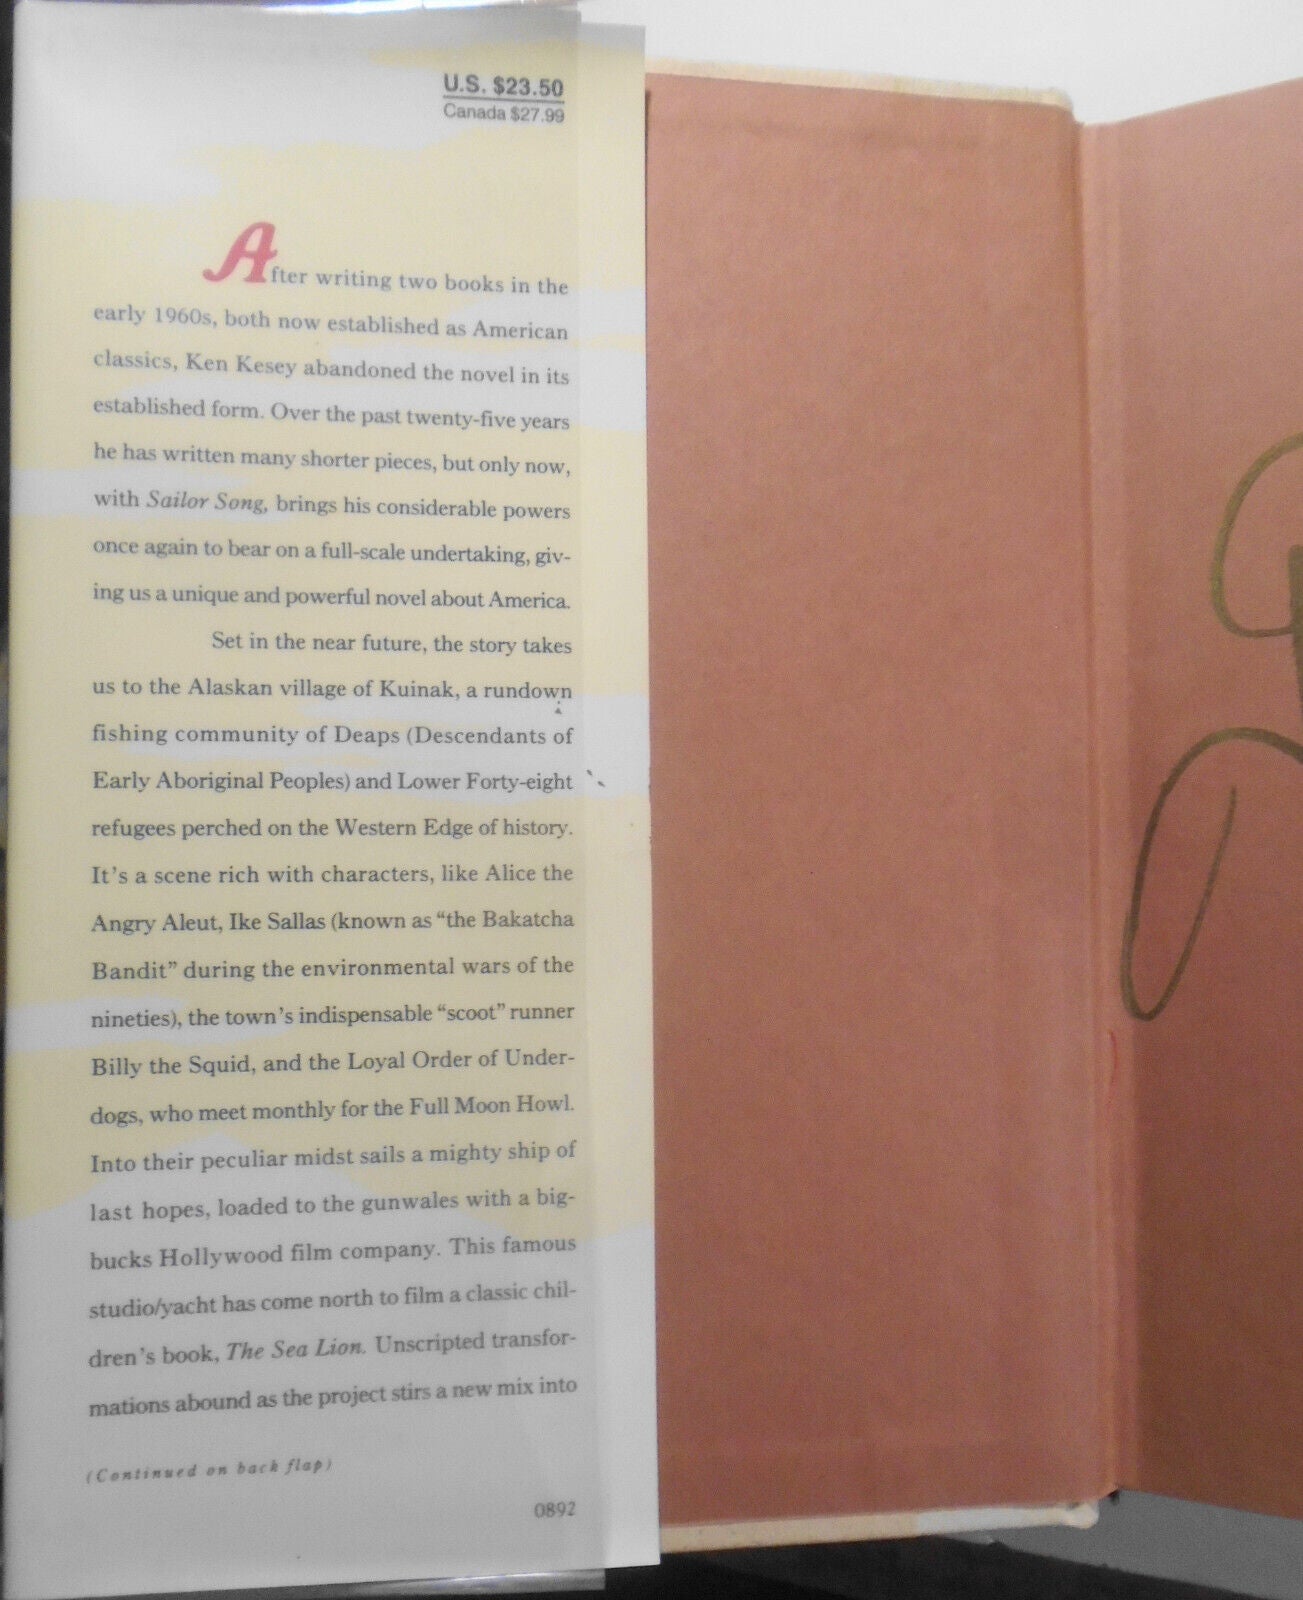 U.S. $23.50
Canada $27.99
After writing two books in the
early 1960s, both now established as American
classics, Ken Kesey abandoned the novel in its
established form. Over the past twenty-five years
he has written many shorter pieces, but only now,
with Sailor Song, brings his considerable powers
once again to bear on a full-scale undertaking, giv-
ing us a unique and powerful novel about America.
Set in the near future, the story takes
us to the Alaskan village of Kuinak, a rundown
fishing community of Deaps (Descendants of
Early Aboriginal Peoples) and Lower Forty-eight
refugees perched on the Western Edge of history.
It's a scene rich with characters, like Alice the
Angry Aleut, Ike Sallas (known as "the Bakatcha
Bandit" during the environmental wars of the
nineties), the town's indispensable "scoot" runner
Billy the Squid, and the Loyal Order of Under-
dogs, who meet monthly for the Full Moon Howl.
Into their peculiar midst sails a mighty ship of
last hopes, loaded to the gunwales with a big-
bucks Hollywood film company. This famous
studio/yacht has come north to film a classic chil-
dren's book, The Sea Lion. Unscripted transfor-
mations abound as the project stirs a new mix into
(Continued on back flap)
0892